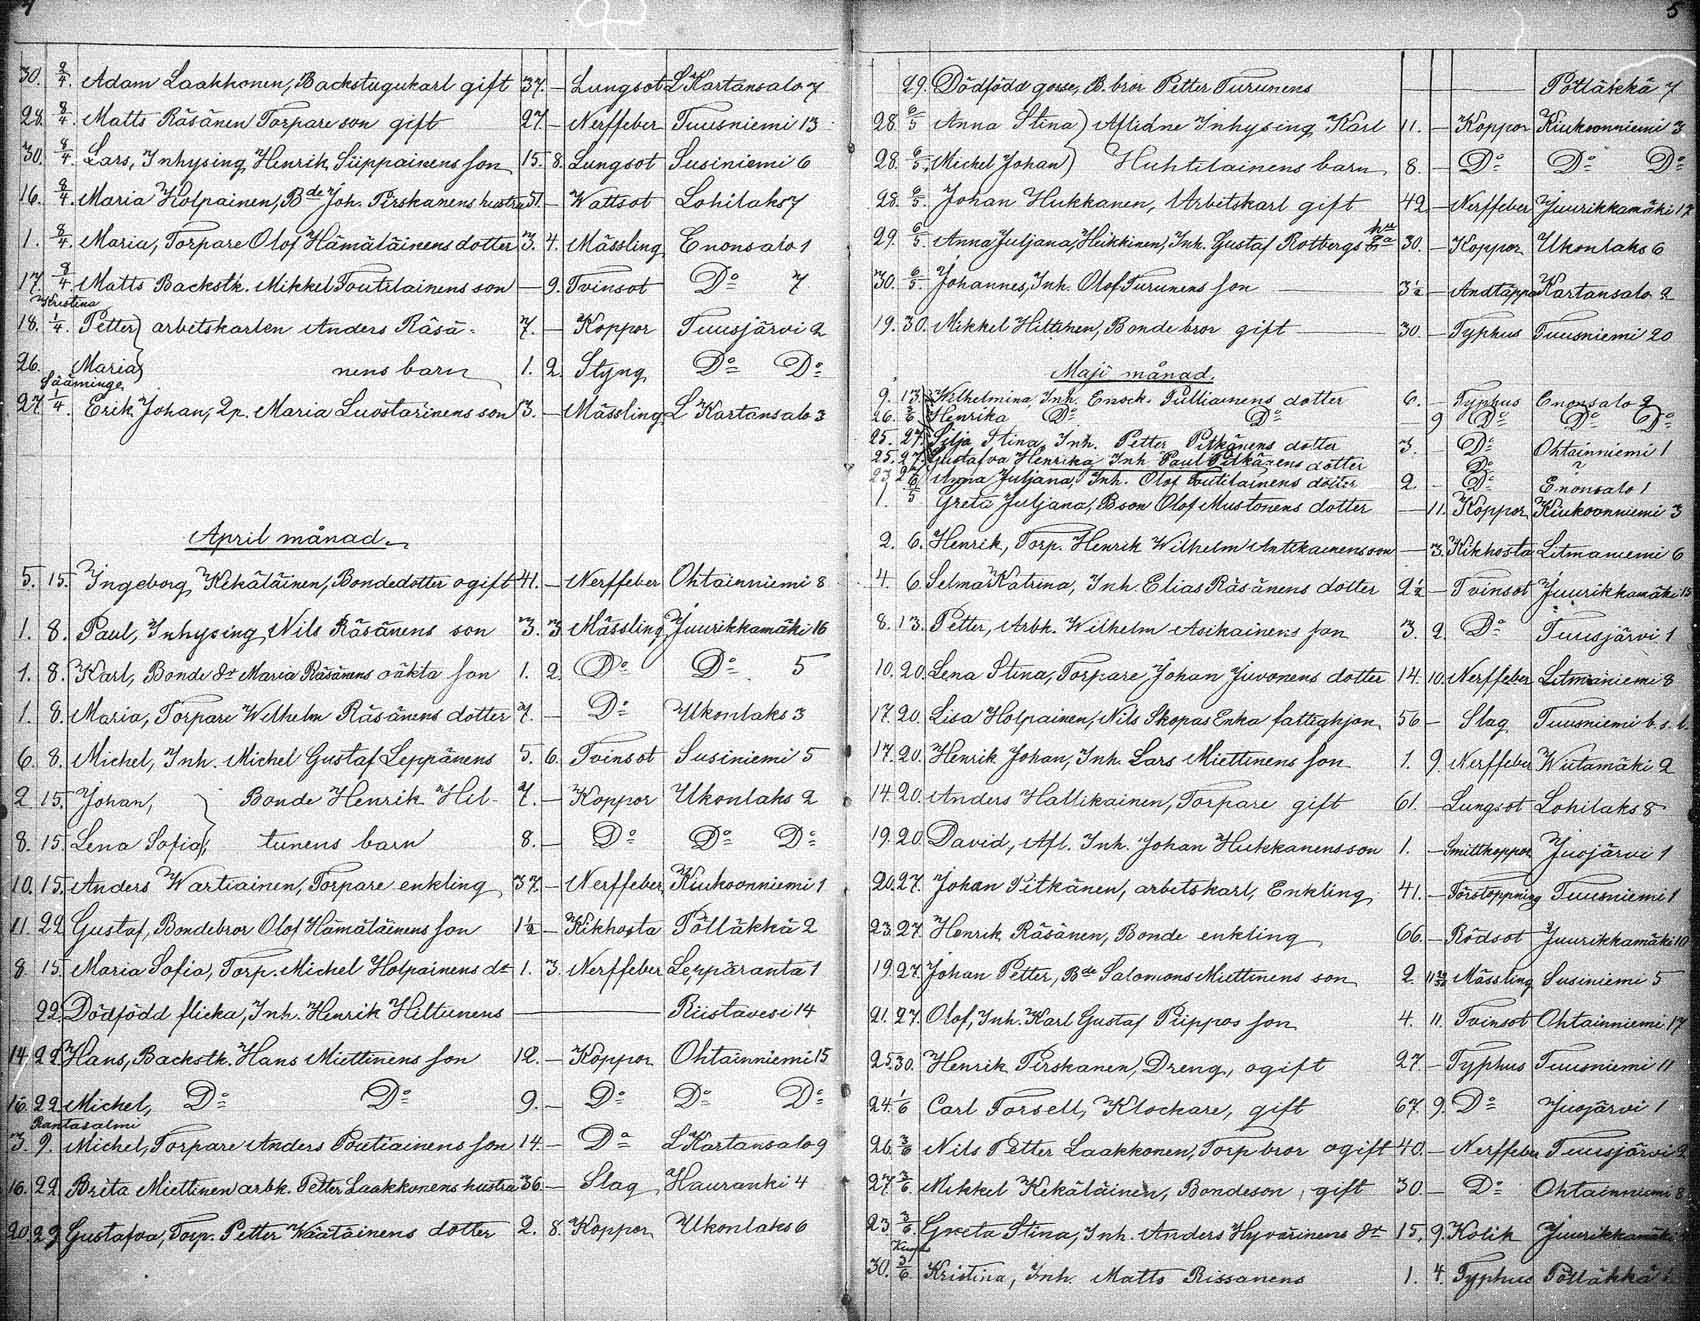 4
30. 2/4. Adam Laakkonen, Backstugukarl gift 37. – Lungsot L Kartansalo 7
28. 8/4. Matts Räsänen Torpare son gift 27. – Nerffeber Tuusniemi 13
30. 8/4. Lars, Inhysing Henrik Siippainens son 15. 8. Lungsot Susiniemi 6
16. 8/4. Maria Holpainen, Bde Joh. Pirskanens hustru 51. – Wattsot Lohilaks 7
1. 8/4. Maria, Torpare Olof Hämäläinens dotter 3. 4. Mässling Enonsalo 1
17. 8/4. Matts Backstk. Mikkel Toutilainens son – 9. Tvinsot Do 7
Kristina
18. 1/4. Petter) arbetskarlen Anders Räsä- 7. – Koppor Tuusjärvi 2
26. Maria) nens barn 1. 2. Styng Do Do
Sääminge
27. 1/4. Erik Johan, Qp. Maria Luostarinens son 3. – Mässling L Kartansalo 3
April månad.
5. 15. Ingeborg Kekäläinen, Bondedotter ogift 41. – Nerffeber Ohtainniemi 8
1. 8. Paul, Inhysing Nils Räsänens son 3. 3. Mässling Juurikkamäki 16
1. 8. Karl, Bonde dr Maria Räsänens oäkta son 1. 2. Do Do 5
1. 8. Maria, Torpare Wilhelm Räsänens dotter 7. – Do Ukonlaks 3
6. 8. Michel, Inh. Michel Gustaf Leppänens 5. 6. Tvinsot Susiniemi 5
2. 15. Johan, ) Bonde Henrik Hil- 7. – Koppor Ukonlaks 2
8. 15. Lena Sofia, ) tunens barn 8. – Do Do Do
10. 15. Anders Wartiainen, Torpare enkling 37. – Nerffeber Kiukoonniemi 1
11. 22. Gustaf, Bondebror Olof Hämäläinens son 1½ – Kikhosta Pölläkkä 2
8. 15. Maria Sofia, Torp. Michel Holpainens dr 1. 3. Nerffeber Lepparanta 1
22. Dödfödd flicka, Inh. Henrik Hiltunens Riistavesi 14
14. 22. Hans, Backstk. Hans Miettinens son 12. – Koppor Ohtainniemi 15
16. 22. Michel, Do Do 9. – Do Do Do
Rantasalmi
3. 9. Michel, Torpare Anders Poutiainens son 14. – Do L Kartansalo 9
16. 22. Brita Miettinen arbk. Petter Laakkonens hustru 36. – Slag Hauranki 4
20. 29. Gustafva, Torp. Petter Wäätäinens dotter 2. 8. Koppor Ukonlaks 6
5
29. Dödfödd gosse, B. bror Petter Turunens Pölläkkä 7
28. 6/5 Anna Stina ) Aflidne Inhysing Karl 11. – Koppor Kiukoonniemi 3
28. 6/5. Michel Johan ) Huhtilainens barn 8. – Do Do Do
28. 6/5. Johan Hukkanen, Arbetskarl gift 42 – Nerffeber Juurikkamäki 17
29. 6/5 Anna Juljana, Heikkinen, Inh. Gustaf Rotbergs hu 30. – Koppor Ukonlaks 6
30. 6/5. Johannes, Inh. Olof Turunens son 3½ – Andtäppa Kartansalo 2
19. 30. Mikkel Hiltinen, Bonde bror gift 30 – Typhus Tuusniemi 20
Maji månad.
9. 13. Wilhelmina, Inh. Enock. Pulliainens dotter 6. – Typhus Enonsalo 2
26. Henrika Do Do – 9 Do Do Do
25. 27. Silja Stina, Inh. Petter Pitkänens dotter 3. – Do Ohtainniemi 1
25. 27. Gustafva Henrika Inh Paul Pitkänens dotter Do
23 27 Anna Juljana, Inh. Olof Toutilainens dotter 2. – Do Enonsalo 1
1. 6/5 Greta Juljana, Bson Olof Mustonens dotter – 11. Koppor Kiukoonniemi 3
2. 6. Henrik, Torp. Henrik Wilhelm Antikainens son – 3. Kikhosta Litmaniemi 6
4. 6. Selma Katrina, Inh Elias Räsänens dotter 2½ – Tvinsot Juurikkamäki 15
8. 13. Petter, Arbk. Wilhelm Asikainens son 3. 2. Do Tuusjärvi 1
10. 20. Lena Stina, Torpare Johan Juvonens dotter 14. 10. Nerffeber Litmaniemi 8
17. 20. Lisa Holpainen, Nils Skopas Enka fattighjon 56 – Slag Tuusniemi b. s. l.
17. 20. Henrik Johan, Inh. Lars Miettinens son 1. 9. Nerffeber Wiitamäki 2
14. 20. Anders Hallikainen, Torpare gift 61. – Lungsot Lohilaks 8
19. 20. David, Afl. Inh. Johan Hukkanens son 1. – Smittkoppor Juojärvi 1
20. 27. Johan Pitkänen, arbetskarl, Enkling 41. – Förstoppning Tuusniemi 1
23. 27. Henrik Räsänen, Bonde enkling 66. – Rödsot Juurikkamäki 10
19. 27. Johan Petter, Bde Salomons Miettinens son 2 11 Mässling Susiniemi 5
21. 27. Olof, Inh. Karl Gustaf Piippos son 4. 11. Tvinsot Ohtainniemi 17
25. 30. Henrik Pirskanen, Dreng, ogift 27. – Typhus Tuusniemi 11
24. 1/6 Carl Forsell, Klockare, gift 67. 9. Do Juojärvi 1
26. 3/6 Nils Petter Laakkonen, Torp bror ogift 40. – Nerffeber Tuusjärvi 2
27. 3/6 Mikkel Kekäläinen, Bondeson, gift 30. – Do Ohtainniemi 8
23. 3/6. Greta Stina, Inh. Anders Hyvärinens dr 15. 9. Kolik Juurikkamäki
30. 3/6 Kristina, Inh. Matts Rissanens 1. 4. Typhus Pölläkkä